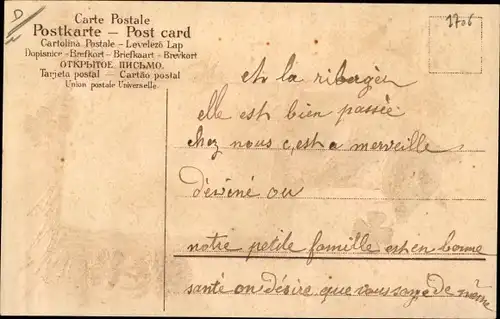 D
Carte Postale
Postkarte — Post card
Cartolina Postale - Levelező Lap
Dopisnice - Brefkort - Briefkaart - Brevkort
ОТКРЫТОЕ ПИСЬМО.
Tarjeta postal — Cartão postal
Union postale Universelle.
1706
et la
elle est bien passée
chez nous c'est a merveille
ou
notre petite famille est en bonne
santé on désire que vous soyé de même